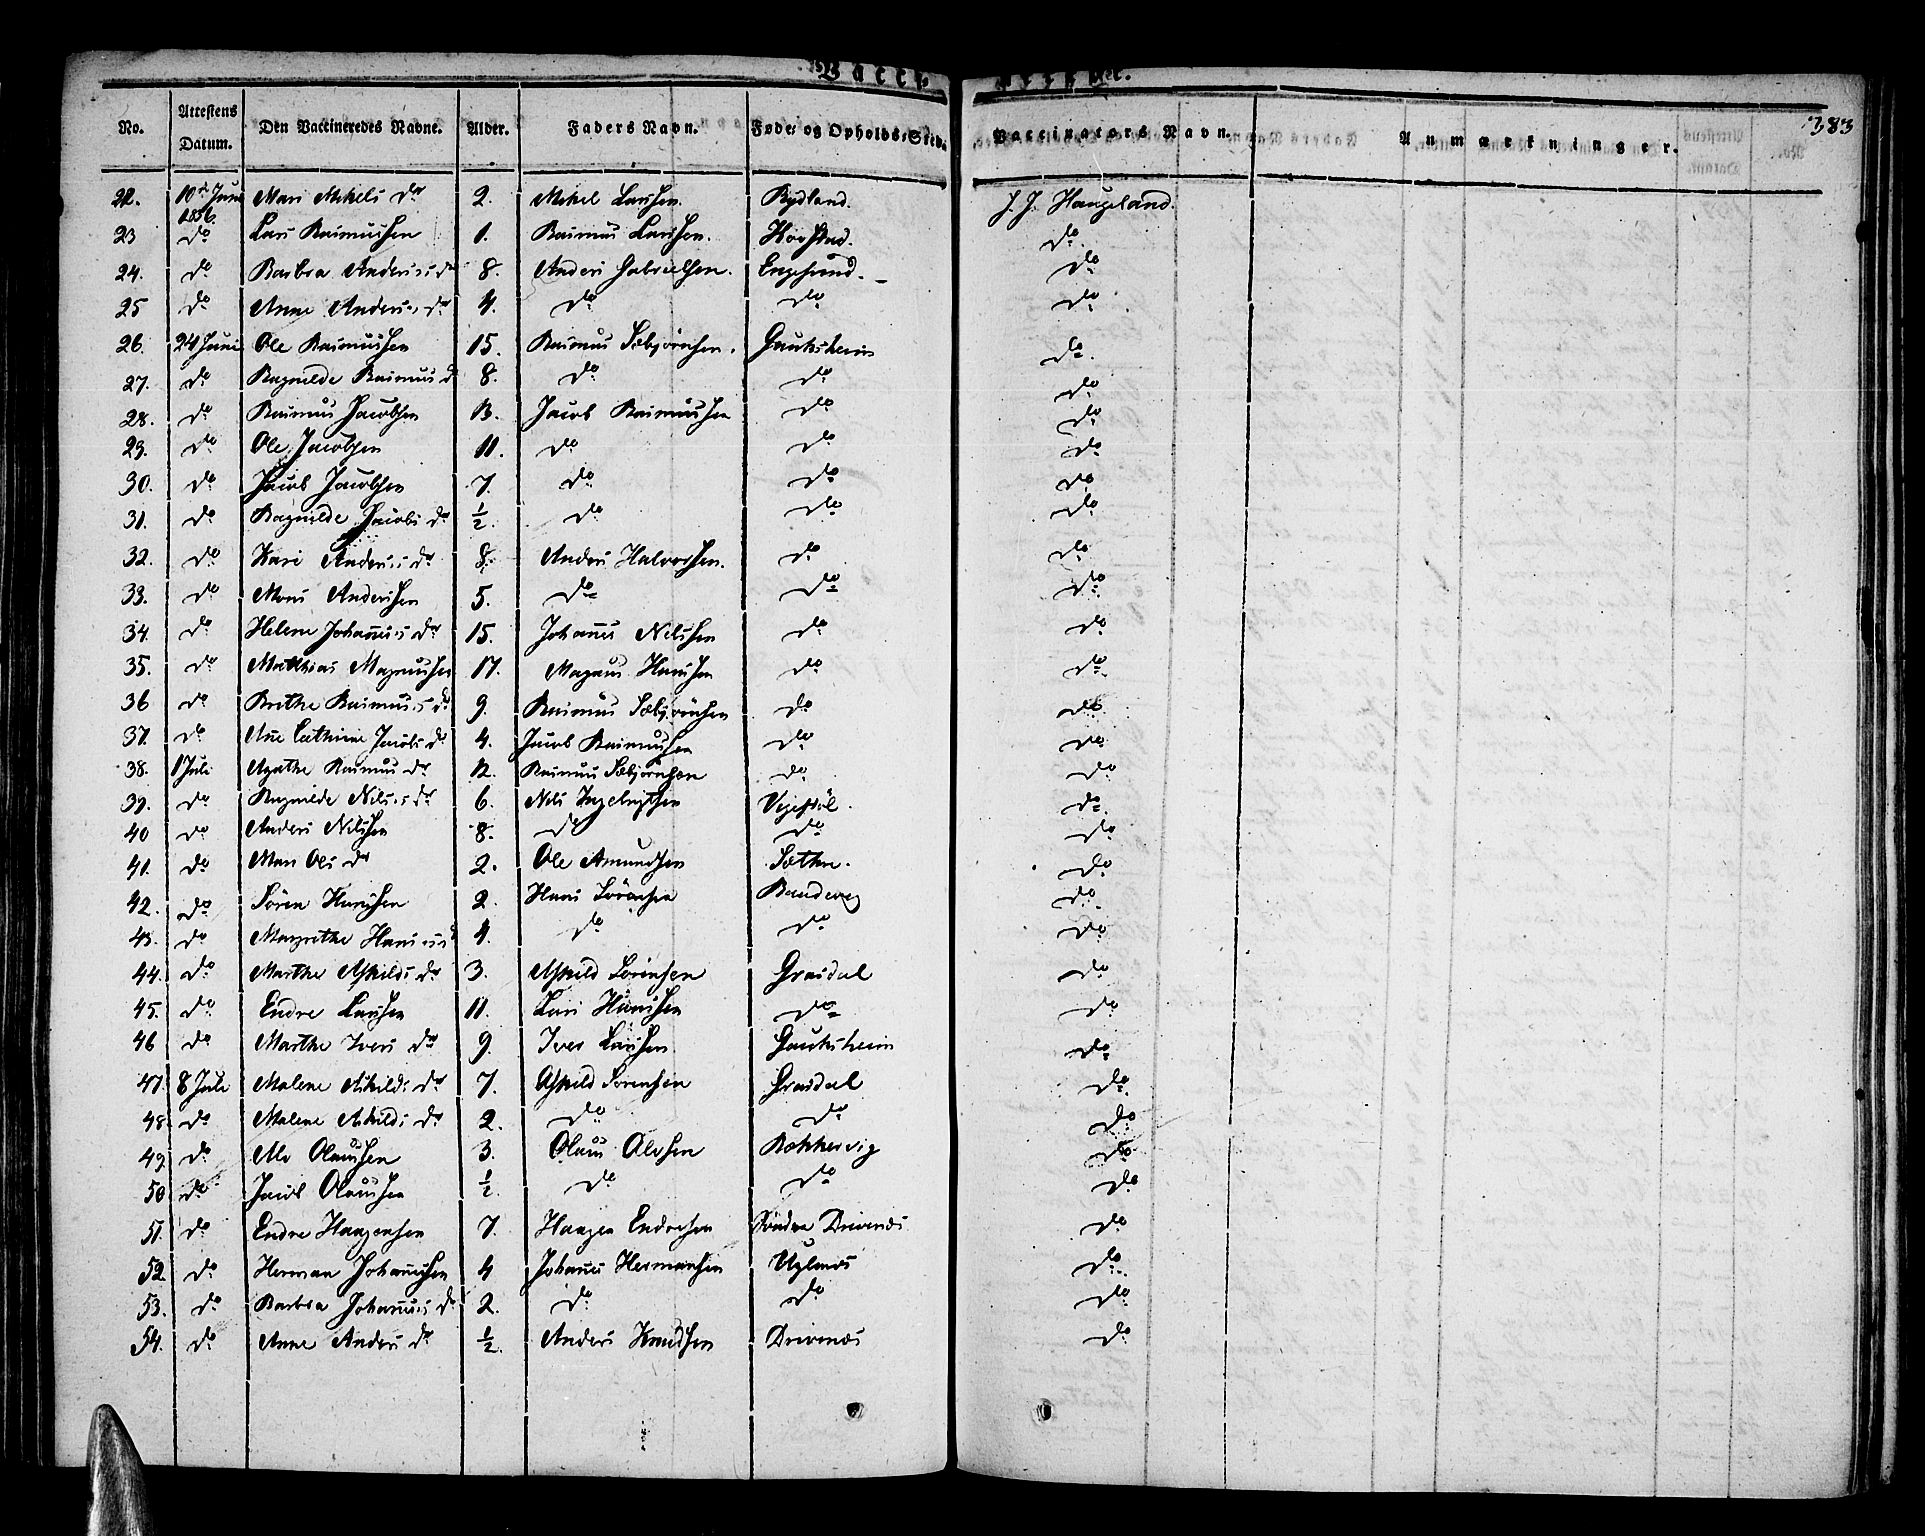 Vacci
383
No. Attestens Datum. Den Vaccineredes Navne. Alder. Faders Navn. Føde- og Opholds-Sted. Vaccinators Navn. Anmærkninger.
22. 10de Juni 1836. Mari Mikels dr 2. Mikel Larssen. Rydland. J. J. Haugeland.
23 do Lars Rasmussen 1. Rasmus Larssen. do
24. do Barbra Anders's dr 8. Anders Gabrielsen. Engesund. do
25 do Anne Anders's dr 4. do do do
26. 24 Juni Ole Rasmussen 15. Rasmus Sebjörnsen. Gauksheim do
27. do Ragnilde Rasmus d 8. do do do
28. do Rasmus Jacobsen 13. Jacob Rasmussen do do
29. do Ole Jacobsen 11. do do do
30. do Jacob Jacobsen 7. do do do
31. do Ragnilde Jacobs dr ½. do do do
32. do Kari Anders's dr 8. Anders Halvorsen. do do
33. do Mons Andersen 5. do do do
34. do Helene Johannes's dr 15. Johannes Nilssen do do
35. do Matthias Magnussen 17. Magnus Hanssen do do
36 do Brithe Rasmus's dr 9. Rasmus Sebjörnsen do do
37. do Ane Cathrine Jacobs dr 4. Jacob Rasmussen do do
38. 1 Juli Agathe Rasmus dr 12. Rasmus Sebjörnsen do do
39. do Ragnilde Nils's dr 6. Nils Ingebrigtsen do
40 do Anders Nilssen 8. do do do
41. do Mari Ols dr 2. Ole Amundsen Sæthre. do
42. do Sören Hanssen 2. Hans Sörensen do
43. do Margrethe Hans's d 4. do do do
44. do Marthe Askilds dr 3. Askild Sörensen Grasdal do
45. do Endre Larssen 11. Lars Hanssen do do
46 do Marthe Ivers dr 9. Iver Larssen Gauksheim do
47. 8 Juli Malene Askilds dr 7. Askild Sörensen Grasdal do
48. do Malene Askilds dr 2. do do do
49. do Ale Olaussen 3. Olaus Alesen Rokkervig do
50 do Jacob Olaussen ½. do do do
51. do Endre Haagensen 7. Haagen Endresen Söndre Drivenes do
52. do Herman Johannessen 4 Johannes Hermansen Uglenes do
53. do Barbra Johannes's dr 2. do do do
54. do Anne Anders dr ½. Anders Knudsen Drivenes do